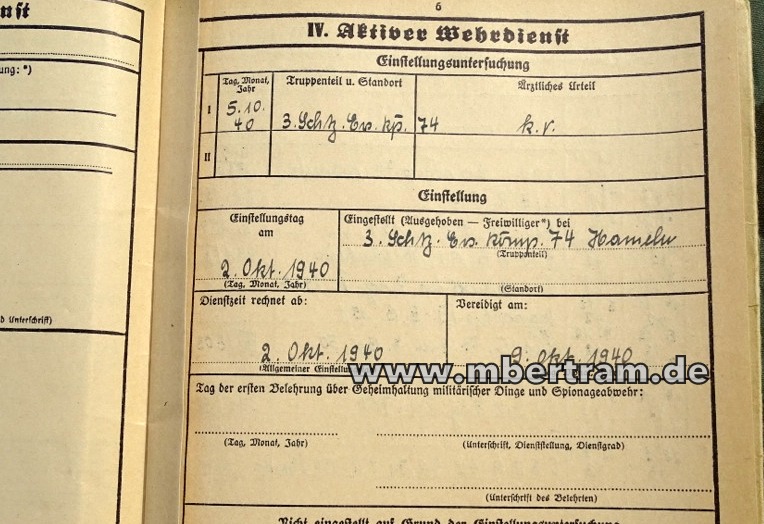 nst
ung: *)
d Unterschrift)
6
IV. Aktiver Wehrdienst
Einstellungsuntersuchung
Tag, Monat, Jahr
Truppenteil u. Standort
Ärztliches Urteil
I
5. 10. 40
3. Schtz. Ers. Kp. 74
k. v.
II
Einstellung
Einstellungstag
am
2. Okt. 1940
(Tag, Monat, Jahr)
Eingestellt (Ausgehoben — Freiwilliger*) bei
3. Schtz. Ers. Komp. 74 Hameln
(Truppenteil)
(Standort)
Dienstzeit rechnet ab:
2. Okt. 1940
(Allgemeiner Einstellu
Vereidigt am:
9. Okt. 1940
www.mbertram.de
Tag der ersten Belehrung über Geheimhaltung militärischer Dinge und Spionageabwehr:
(Tag, Monat, Jahr)
(Unterschrift, Dienststellung, Dienstgrad)
(Unterschrift des Belehrten)
Nicht eingestellt auf Grund der Einstellungsuntersuchung